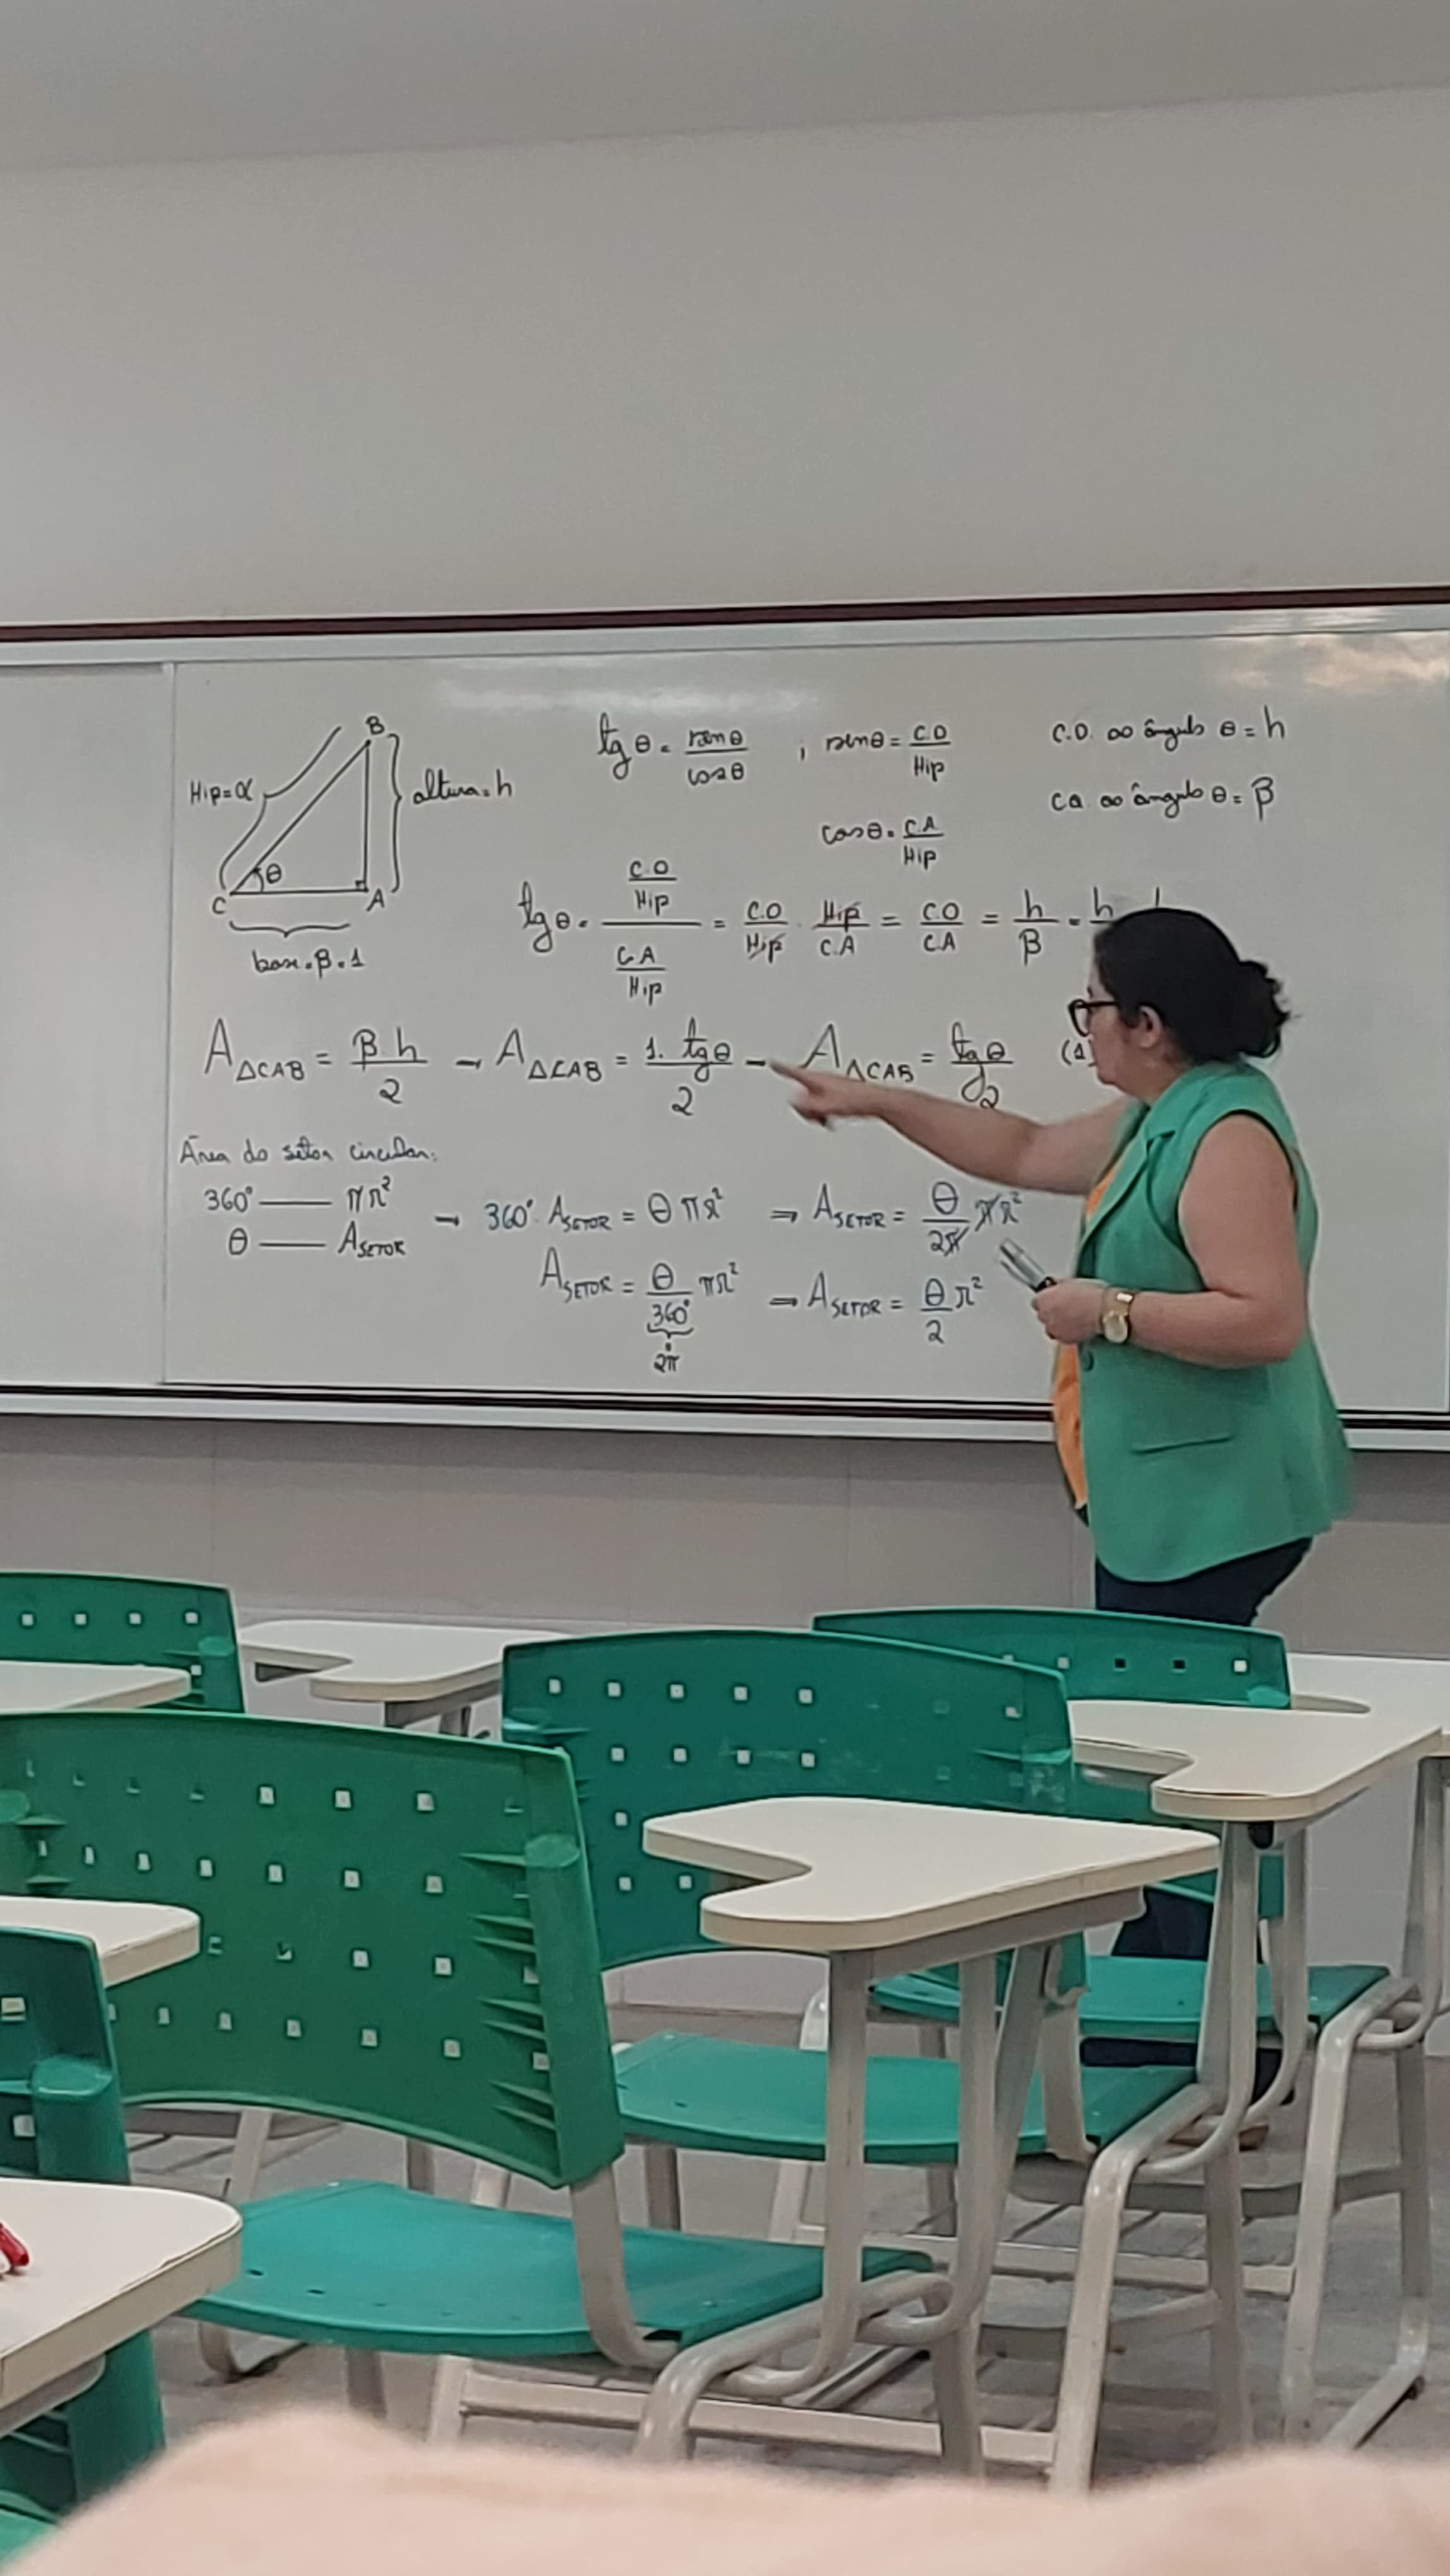 B
Hip=α
altura=h
θ
C
A
base=β=1
tgθ = senθ/cosθ ; senθ = C.O/Hip
cosθ = C.A/Hip
C.O. ao ângulo θ = h
CA ao ângulo θ = β
tgθ = (C.O/Hip)/(C.A/Hip) = C.O/Hip · Hip/C.A = C.O/C.A = h/β = h
A△CAB = β h/2 → A△CAB = 1. tgθ/2 → A△CAB = tgθ/2 (1
Área do setor circular:
360° — πr²
θ — ASETOR
→ 360°. ASETOR = θ πr² ⇒ ASETOR = θ/2π πr²
ASETOR = θ/360° πr² ⇒ ASETOR = θ/2 r²
2π